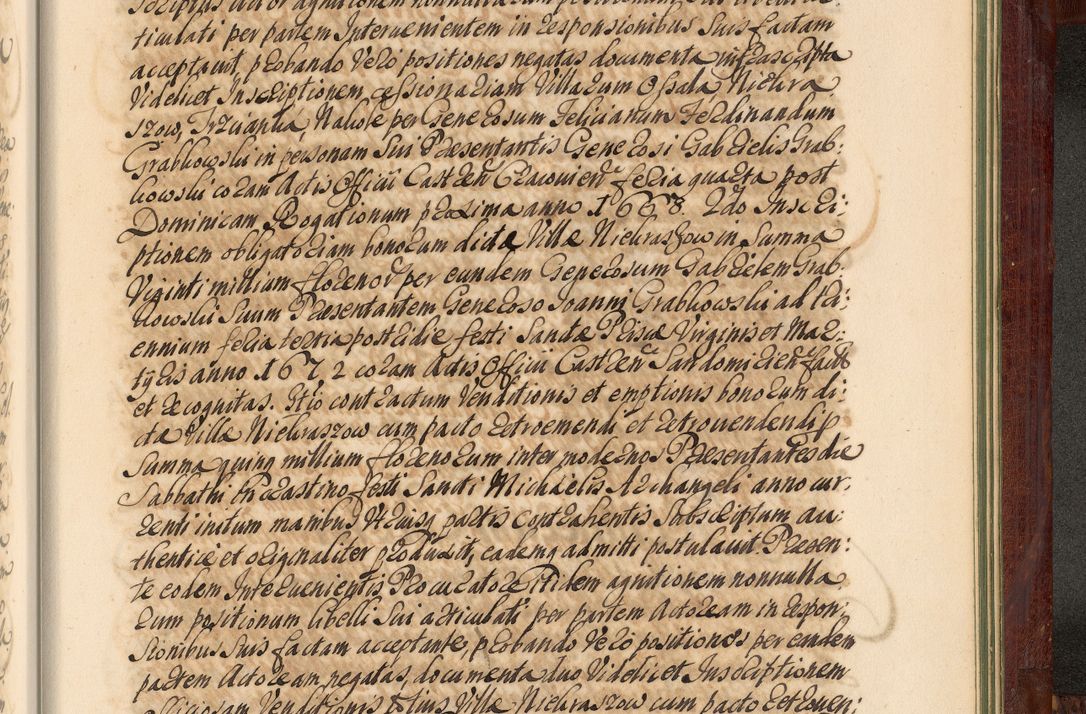 ticulati per partem Intervenientem in responsionibus suis factam
acceptavit, probando vero positiones negatas documenta infrascripta
Videlicet Inscriptionem cessionariam Villarum Ossala Niekra
szow, Trzcianka, Nakole per Generosum Felicianum Ferdinandum
Grabkowski in personam sui Praesentantis Generosi Gabrielis Grab:
kowski coram Actis Officii Castren Cracovien feria quarta post
Dominicam Rogationum proxima anno 1668. 2do Inscri:
ptionem obligatoriam bonorum dictae Villae Niekraszow in Summa
Viginti millium florenor per eundem Generosum Gabrielem Grab:
kowski Suum Praesentantem Generoso Joanni Grabkowski ad tri:
ennium feria tertia postridie festi Sanctae Priscae Virginis et Mar:
tyris anno 1672 coram Actis Officii Castren Sandomirien factas
et recognitas. 3tio contractum Venditionis et emptionis bonorum di:
ctae Villae Niekraszow cum pacto retroemendi et retrovendendi p
Summa quinq millium florenorum inter modernos Praesentantes die
Sabbathi in crastino festi Sancti Michaelis Archangeli anno cur:
renti initum manibus utriusq partis contrahentis Subscriptum au:
thentice et originaliter produxit, eademq admitti postulavit. Praesen:
te eodem Intervenientis Procuratore itidem agnitionem nonnulla
rum positionum libelli sui articulati per partem Actoream in respon:
sionibus suis factam acceptante, probando vero positiones per eandem
partem Actoream negatas, documenta duo Videlicet Inscriptionem
Venditionis Villae Niekraszow cum pacto retroven: